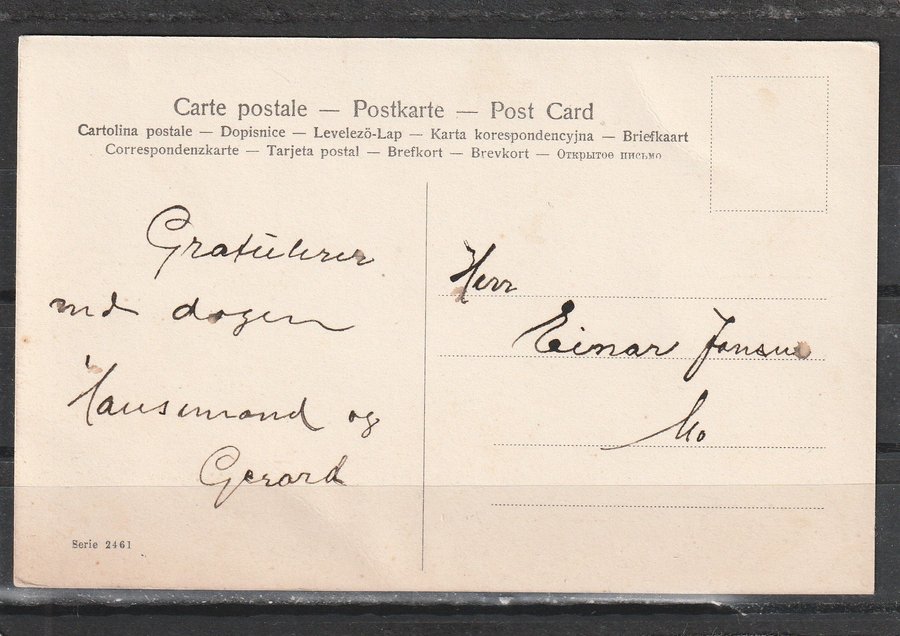 Carte postale — Postkarte — Post Card
Cartolina postale — Dopisnice — Levelező-Lap — Karta korespondencyjna — Briefkaart
Correspondenzkarte — Tarjeta postal — Brefkort — Brevkort — Открытое письмо
Gratulerer
md dagen
og
Gerard
Serie 2461
Herr
Einar Jensen
Mo